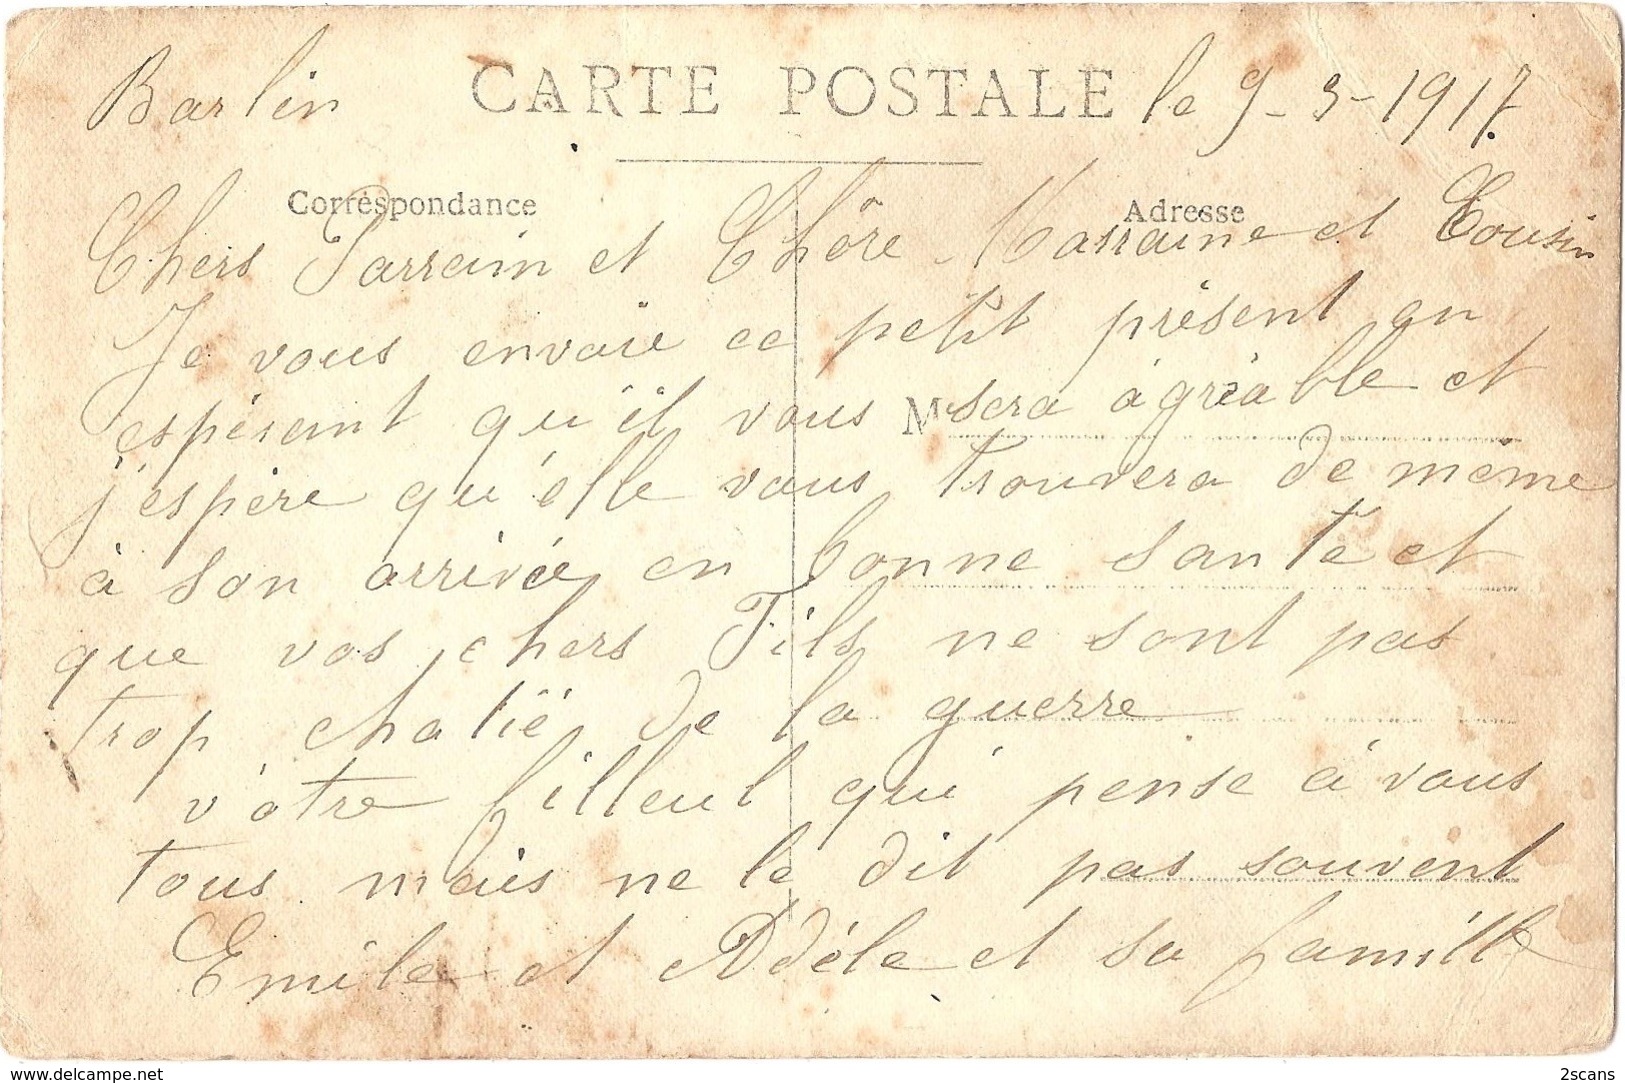 Barlin CARTE POSTALE le 9-3-1917.
Correspondance Adresse
Chers Parrain et Chère Marraine et Cousin
Je vous envoie ce petit présent en
espérant qu'il vous M sera agréable et
j'espère qu'elle vous trouvera de même
à son arrivée en bonne santé et
que vos chers Fils ne sont pas
trop chatié de la guerre
vôtre filleul qui pense à vous
tous mais ne le dit pas souvent
Emile et Adèle et sa famille
www.delcampe.net 2scans